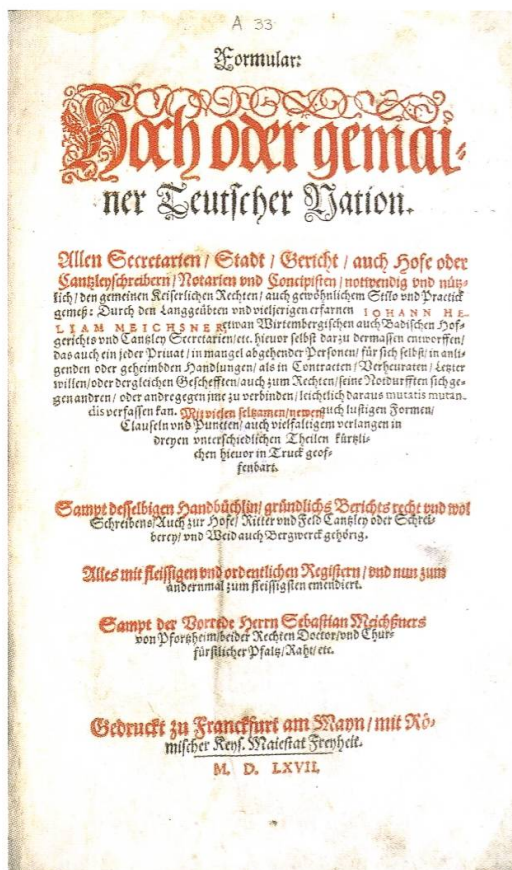 A 33
Formular:
Hoch oder gemai-
ner Teutscher Nation.
Allen Secretarien / Stadt / Gericht / auch Hofe oder
Cantzleyschreibern / Notarien vnd Concipisten / notwendig vnd nütz-
lich / den gemeinen Keiserlichen Rechten / auch gewöhnlichem Stilo vnd Practick
gemeß: Durch den Langgeübten vnd vieljerigen erfarnen IOHANN HE-
LIAM MEICHSNER etwan Wirtembergischen auch Badischen Hof-
gerichts vnd Cantzley Secretarien/etc. hievor selbst darzu dermassen entworffen/
das auch ein jeder Priuat / in mangel abgehender Personen / für sich selbst / in anli-
genden oder geheimbden Handlungen / als in Contracten / Verheuraten / Letzter
willen/oder dergleichen Geschefften/auch zum Rechten/seine Notdurfften sich ge-
gen andren / oder andre gegen jme zu verbinden / leichtlich daraus mutatis mutan-
dis verfassen kan. Mit vielen seltzamen/newen auch lustigen Formen/
Clauseln vnd Puncten / auch vielfaltigem verlangen in
dreyen vnterschiedlichen Theilen kürtzli-
chen hieuor in Truck geof-
fenbart.
Sampt desselbigen Handbüchlin / gründlichs Berichts recht vnd wol
Schreibens/Auch zur Hofe/ Ritter vnd Feld Cantzley oder Schrei-
berey/ vnd Weid auch Bergwerck gehörig.
Alles mit fleissigen vnd ordentlichen Registern / vnd nun zum
andernmal zum fleissigsten emendiert.
Sampt der Vorrede Herrn Sebastian Meichßners
von Pfortzheim/beider Rechten Doctor/vnd Chur-
fürstlicher Pfaltz/Raht/etc.
Gedruckt zu Franckfurt am Mayn / mit Rö-
mischer Keys. Maiestat Freyheit.
M. D. LXVII.